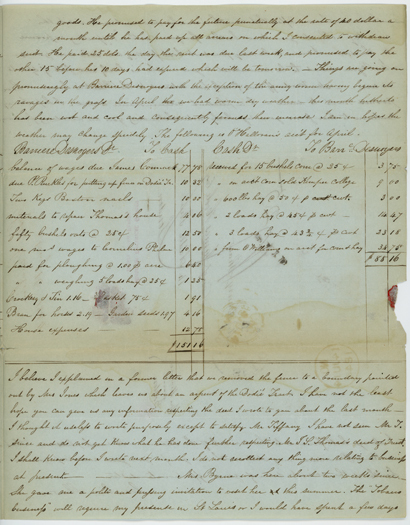 goods. He promised to pay for the future punctually at the rate of 40 dollars a
month until he has paid up all arrears on which I consented to withdraw
suit. He paid 25 dols the day the rent was due last week, and promised to pay the
other 15 before his 10 days had expired which will be tomorrow. — Things are going on
promisingly at Barriere Desnoyers with the exception of the army worm having begun its
ravages on the grass. In April we had warm dry weather — this month hitherto
has been wet and cool and consequently favourable I am in hopes the
weather may change speedily. The following is P. Williams's acct for April.
Barriere Desnoyers Dr. To Cash Cash Dr. To Barr Desnoyers
Balance of wages due James $77.75 received for 15 bushels corn @ 25¢ 3.75
due for putting up fence on 10.32 " on acct corn sold Kemper College 5.00
10.00 " 600 lbs hay @ 50¢ pr cwt 3.00
materials to repair Thomas's house 4.16 " 2 loads hay @ 45¢ pr cwt 14.27
fifty bushels oats @ 25¢ 12.50 " 3 loads hay @ 42½ ¢ pr cwt
one mo's wages to Cornelius 10.00 " from on acct for corn & hay
paid for ploughing @ 1.00 pr acre $55.16
" " weighing 5 loads hay @ 25¢ 1.25
& Tin 1.16 — Basket 75¢ 1.91
Bran for horses 2.19 — Garden seeds 1.97 4.16
House expenses — 12.75
$151.16
I believe I explained in a former letter that we received the farm to a boundary pointed
out by Mrs Jones which leaves us about an arpent of the Trust. I have not the least
hope you can give us any information respecting the deed I wrote to you about the last month —
I thought it useless to write properly except to satisfy Mr Tiffany. I have not seen Mr T.
since and do not yet know what he has done further respecting Mr J. L. Thomas's deed of Trust,
I shall know before I write next month. I do not recollect any thing new relating to business
at present — — — Mrs Byrne was here about two weeks since
She gave me a polite and pressing invitation to visit her at this summer. The Tobacco
business will require my presence in St Louis or I would have spent a few days